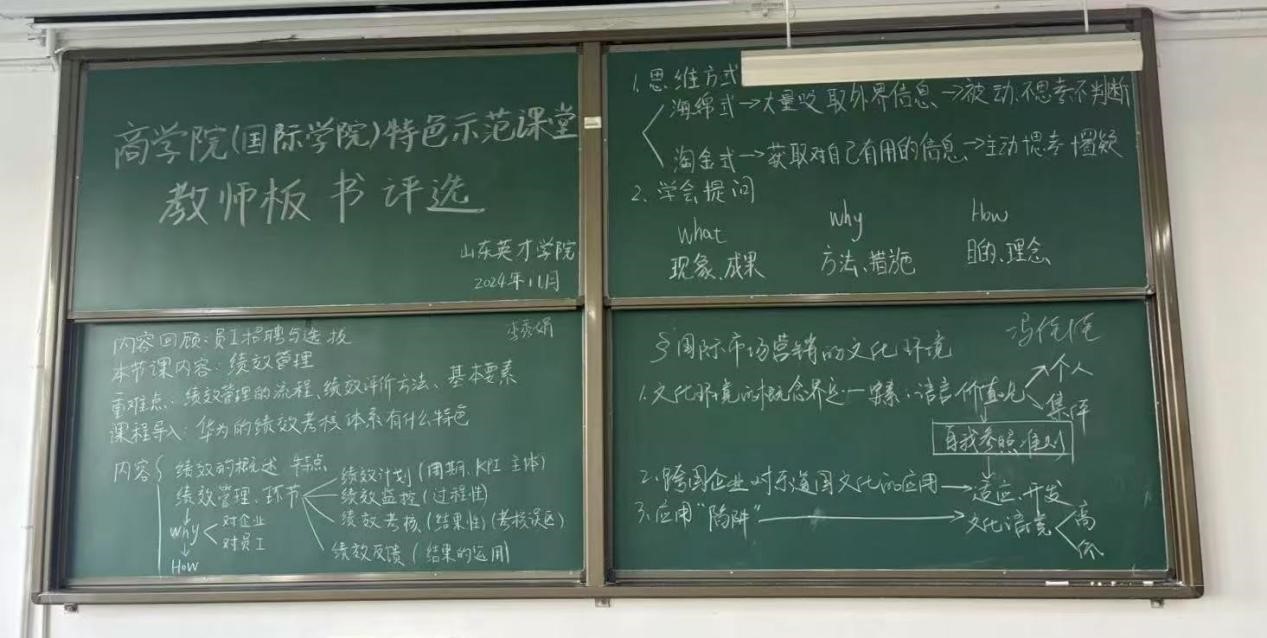 商学院(国际学院)特色示范课堂
教师板书评选
山东英才学院
2024年11月
1.思维方式
海绵式→大量吸取外界信息→被动、不思考不判断
淘金式→获取对自己有用的信息→主动思考 懵疑
2、学会提问
what why How
现象、成果 方法、措施 目的、理念
内容回顾:员工招聘与选拔 李秀娟
本节课内容:绩效管理
重难点:绩效管理的流程、绩效评价方法、基本要素
课程导入:华为的绩效考核体系有什么特色
内容 绩效的概述 特点
绩效管理、环节
绩效计划(周期、KPI 主体)
绩效监控(过程性)
绩效考核、(结果性)(考核误区)
绩效反馈(结果的运用)
why 对企业
对员工
How
§国际市场营销的文化环境
1.文化环境的概念界定 语言 价值观
个人
集体
自我参照准则
2.跨国企业对东道国文化的应用→适应、开发
3.应用“陷阱”→文化语境
高
低